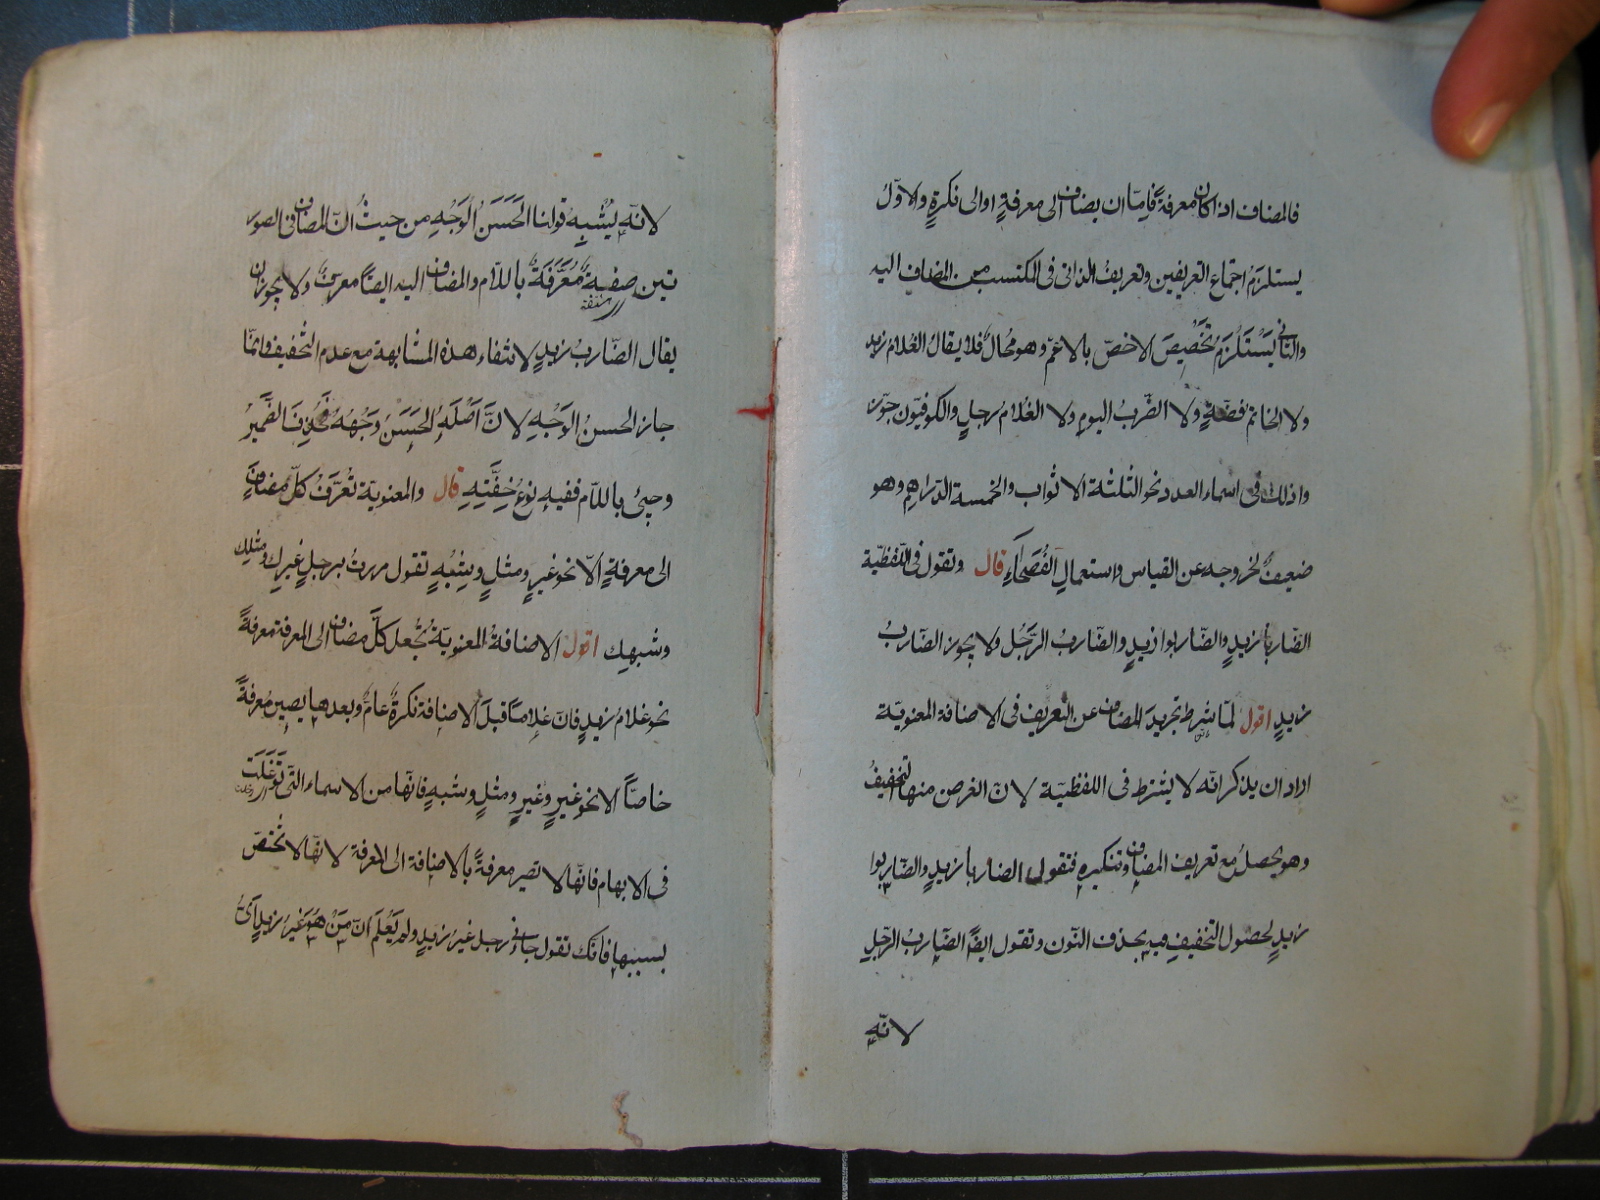 فالمضاف اذا كان معرفةً فامّا ان يضاف الى معرفةٍ او الى نكرةٍ والاوّلُ
يستلزمُ اجتماع التعريفين وتعريفُ الذاتى فى المكتسب من المضاف اليه
والثانى يَسْتَلْزِمُ تَخْصِيصَ الاخصّ بالاعمّ وهو محُالٌ فلا يقالُ الغُلامُ زيدٍ
ولا الخاتم فضّةٍ ولا الضّربُ اليومِ ولا الغُلامُ رجلٍ والكوفيّون جوّزوا
ذلك فى اسماء العدد نحو الثلثة الاثواب والخمسة الدّراهِمِ وهو
ضعيفٌ لخروجه عن القياس واستعمالِ الفُصَحَاءِ قال وتقول فى اللّفظيّة
الضّاربَا زيدٍ والضّاربوا زيدٍ والضّاربُ الرّجُل ولا يجوز الضّاربُ
زيدٍ اقول لمّا شرط تجريدَ المضاف عن التعريف فى الاضافة المعنويّة
اراد ان يذكر انّه لا يشترط فى اللفظيّة لانّ الغرض منها التخفيفُ
وهو يحصلُ مع تعريف المضاف وتنكيره فتقول الضاربا زيدٍ والضّاربوا
زيدٍ لحصول التخفيفِ فيه بحذف النّون وتقول ايضًا الضّاربُ الرّجلِ
لانّه
لانّه يُشْبِهُ قولنا الحَسَنُ الوَجْهِ من حيثُ انّ المضاف فى الصور
تين صفةٌ مُعَرَّفَةٌ باللّام والمضاف اليه ايضًا معرّفٌ ولا يجوز ان
يقال الضّاربُ زيدٍ لانتفاء هذه المشابهة مع عدم التّخفيف وانمّا
جاز الحسنُ الوَجْهِ لانَّ اَصْلَهُ الحَسَنُ وَجْهُهُ فَحُذِفَ الضَّمِيرُ
وجئ باللّام ففيه نوعُ خِفَّتِهِ قال والمعنويّة تُعَرِّفُ كلّ مضافٍ
الى معرفةٍ الّا نحو غيرٍ ومثلٍ وشِبْهٍ تقول مررتُ برجلٍ غيرِك ومثلِك
وشبهِك اقول الاضافةُ المعنويّةُ تجعل كلَّ مضافٍ الى المعرفة معرفةً
نحو غلام زيدٍ فانّ غلامًا قبلَ الاضافة نكرةٌ عامٌّ وبعدها يصير معرفةً
خاصًّا الا نحو غيرٍ وغيرٍ ومثلٍ وشبهٍ فانّها من الاسماء الّتى تَوَغَّلَت
فى الابهام فانّها لا تصير معرفةً بالاضافة الى المعرفة لانّها لا تختصّ
بسببها فانّك تقول جاءنى رجل غير زيدٍ ولم يَعْلَم انّ مَنْ هُوَ غيرُ زيدٍ اَىُّ